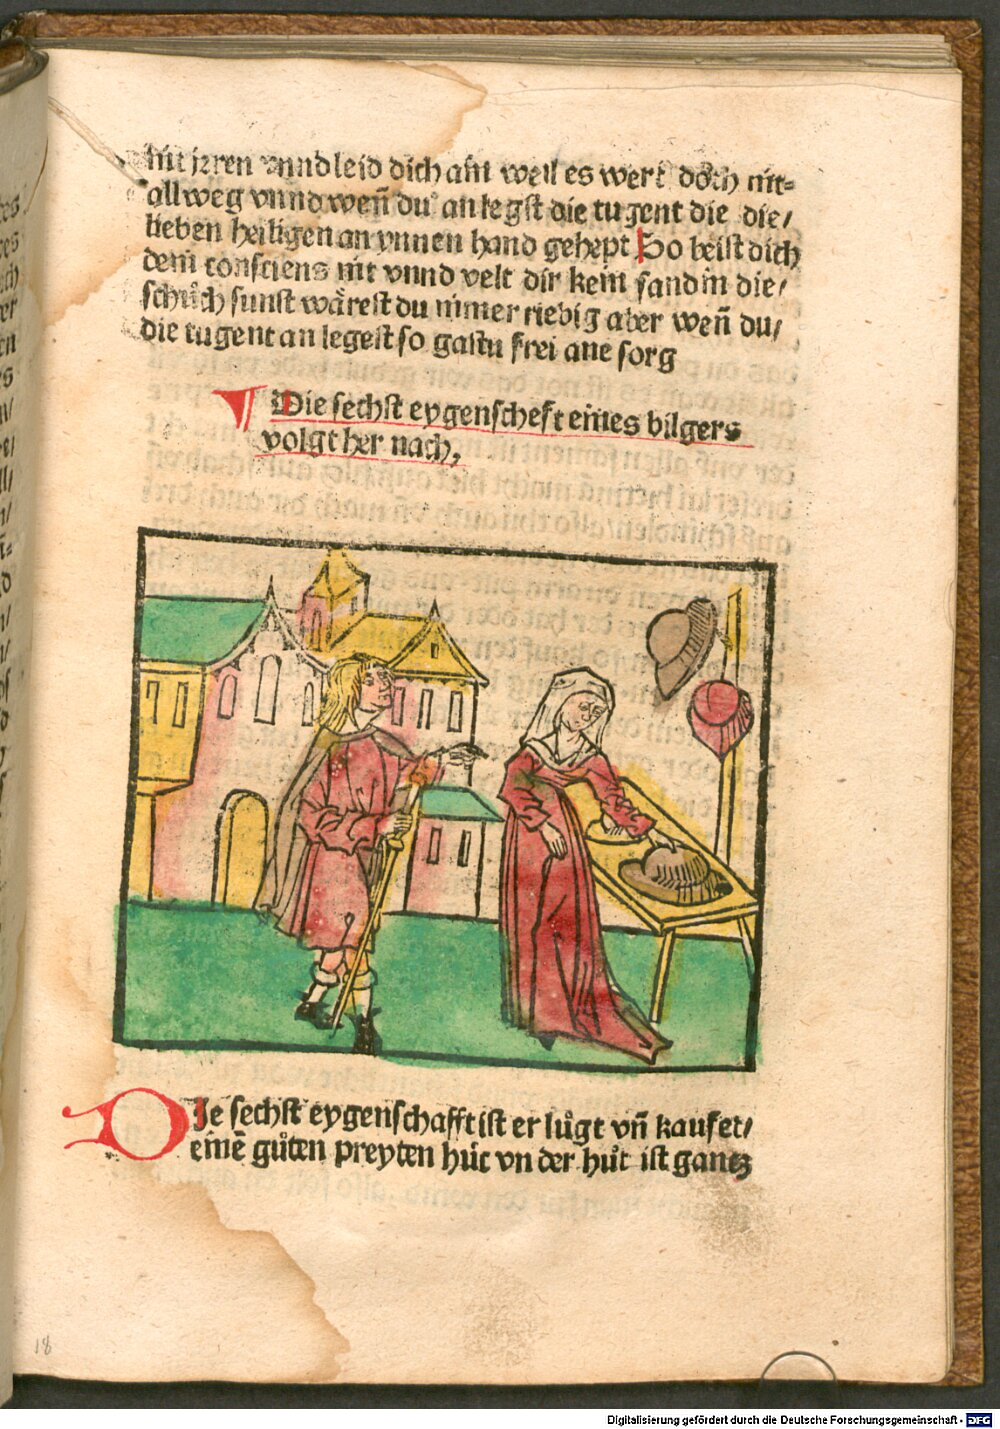 nit irren vnnd leid dich ain weil es wert doch nit=
allweg vnnd weñ du an legst die tugent die die/
lieben heiligen an ynnen hand gehept So beist dich
dein consciens nit vnnd velt dir kein sand in die/
schůch sunst wårest du nimer riebig aber weñ du/
die tugent an legest so gastu frei ane sorg
¶ Die sechst eygenscheft eines bilgers
volgt her nach,
DIe sechst eygenschafft ist er lůgt vñ kaufet/
einē gůten preyten hůt vn der hůt ist gantz
18
Digitalisierung gefördert durch die Deutsche Forschungsgemeinschaft - DFG